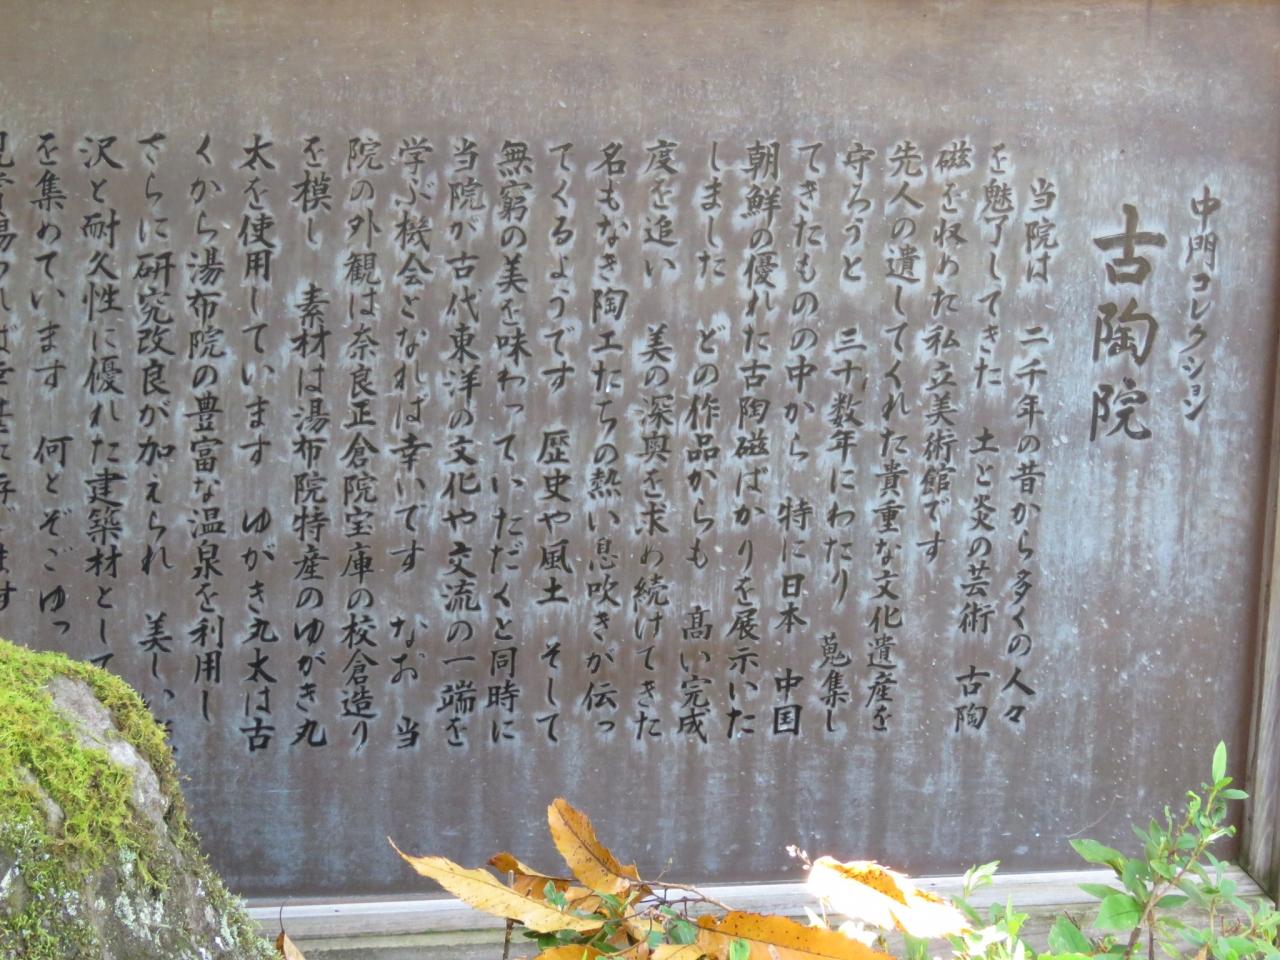 中門コレクション
古陶院
当院は 二千年の昔から多くの人々
を魅了してきた 土と炎の芸術 古陶
磁を収めた私立美術館です
先人の遺してくれた貴重な文化遺産を
守ろうと 三十数年にわたり 蒐集し
てきたものの中から 特に日本 中国
朝鮮の優れた古陶磁ばかりを展示いた
しました どの作品からも 高い完成
度を追い 美の深奥を求め続けてきた
名もなき陶工たちの熱い息吹きが伝っ
てくるようです 歴史や風土 そして
無窮の美を味わっていただくと同時に
当院が古代東洋の文化や交流の一端を
学ぶ機会となれば幸いです なお 当
院の外観は奈良正倉院宝庫の校倉造り
を模し 素材は湯布院特産のゆがき丸
太を使用しています ゆがき丸太は古
くから湯布院の豊富な温泉を利用し
さらに研究改良が加えられ 美しい
沢と耐久性に優れた建築材として
を集めています 何とぞごゆっ